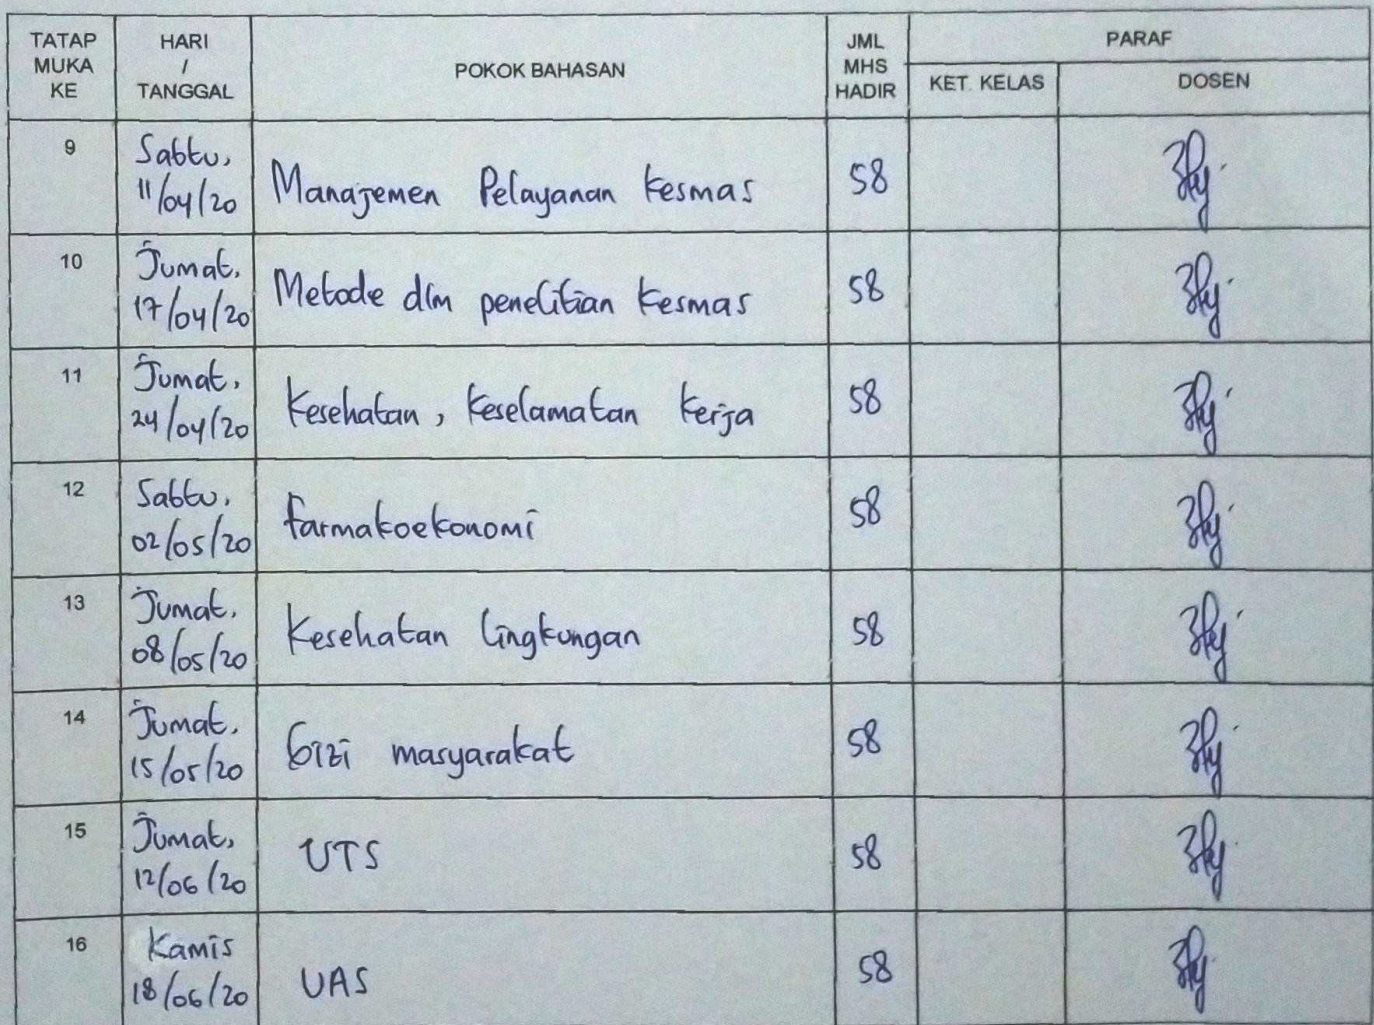 TATAP MUKA KE HARI / TANGGAL POKOK BAHASAN JML MHS HADIR PARAF
KET. KELAS DOSEN
9 Sabtu, 11/04/20 Manajemen Pelayanan kesmas 58
10 Jumat, 17/04/20 Metode dlm penelitian kesmas 58
11 Jumat, 24/04/20 kesehatan, keselamatan kerja 58
12 Sabtu, 02/05/20 farmakoekonomi 58
13 Jumat, 08/05/20 kesehatan lingkungan 58
14 Jumat, 15/05/20 Gizi masyarakat 58
15 Jumat, 12/06/20 UTS 58
16 Kamis 18/06/20 UAS 58